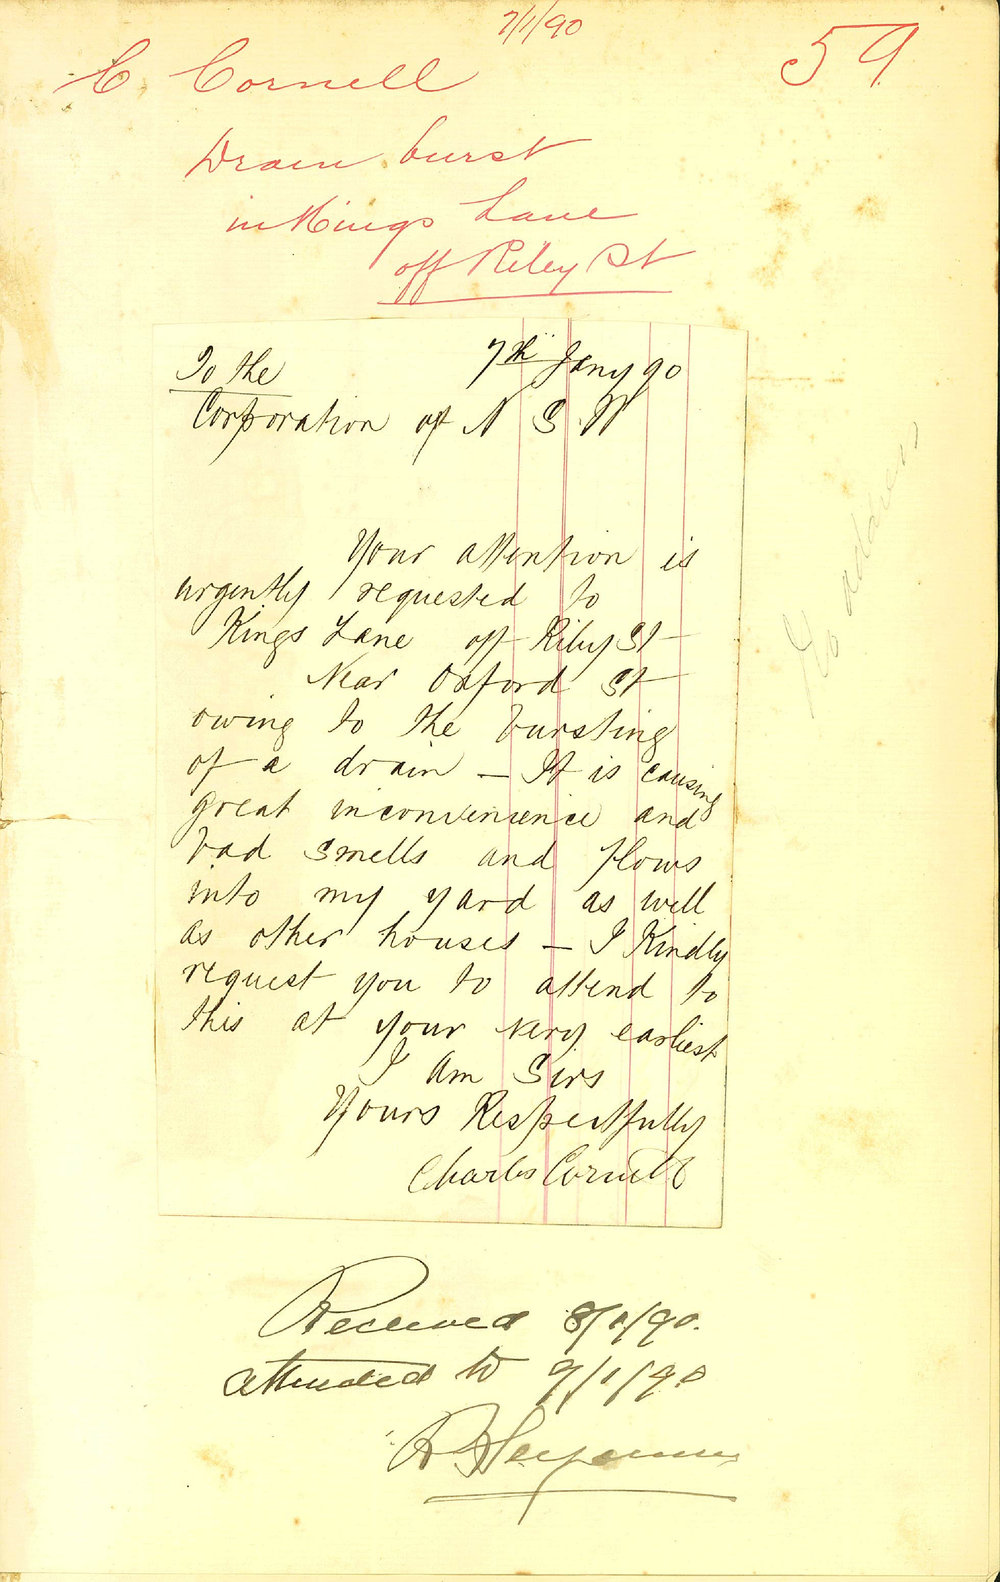 7/1/90
C. Cornell
59
Drain burst
in Kings Lane
off Riley St
To the
7th Jany 90
Corporation of N S W
Your attention is
urgently requested to
Kings Lane off Riley St
Near Oxford St
owing to the bursting
of a drain — It is causing
great inconvenience and
bad smells and flows
into my yard as well
as other houses — I Kindly
request you to attend to
this at your very earliest
I Am Sirs
Yours Respectfully
Charles Cornell
No address
Received 8/1/90.
attended to 9/1/90